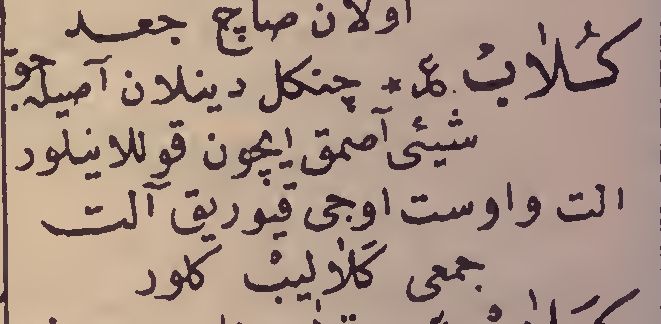 اولان صاچ جعد
كُلَابْ ع * چنكل دينلان آصيله جق
شيئی آصمق ایچون قوللانیلور
الت و اوست اوجی قیوریق آلت
جمعی كَلَالِيبْ كلور